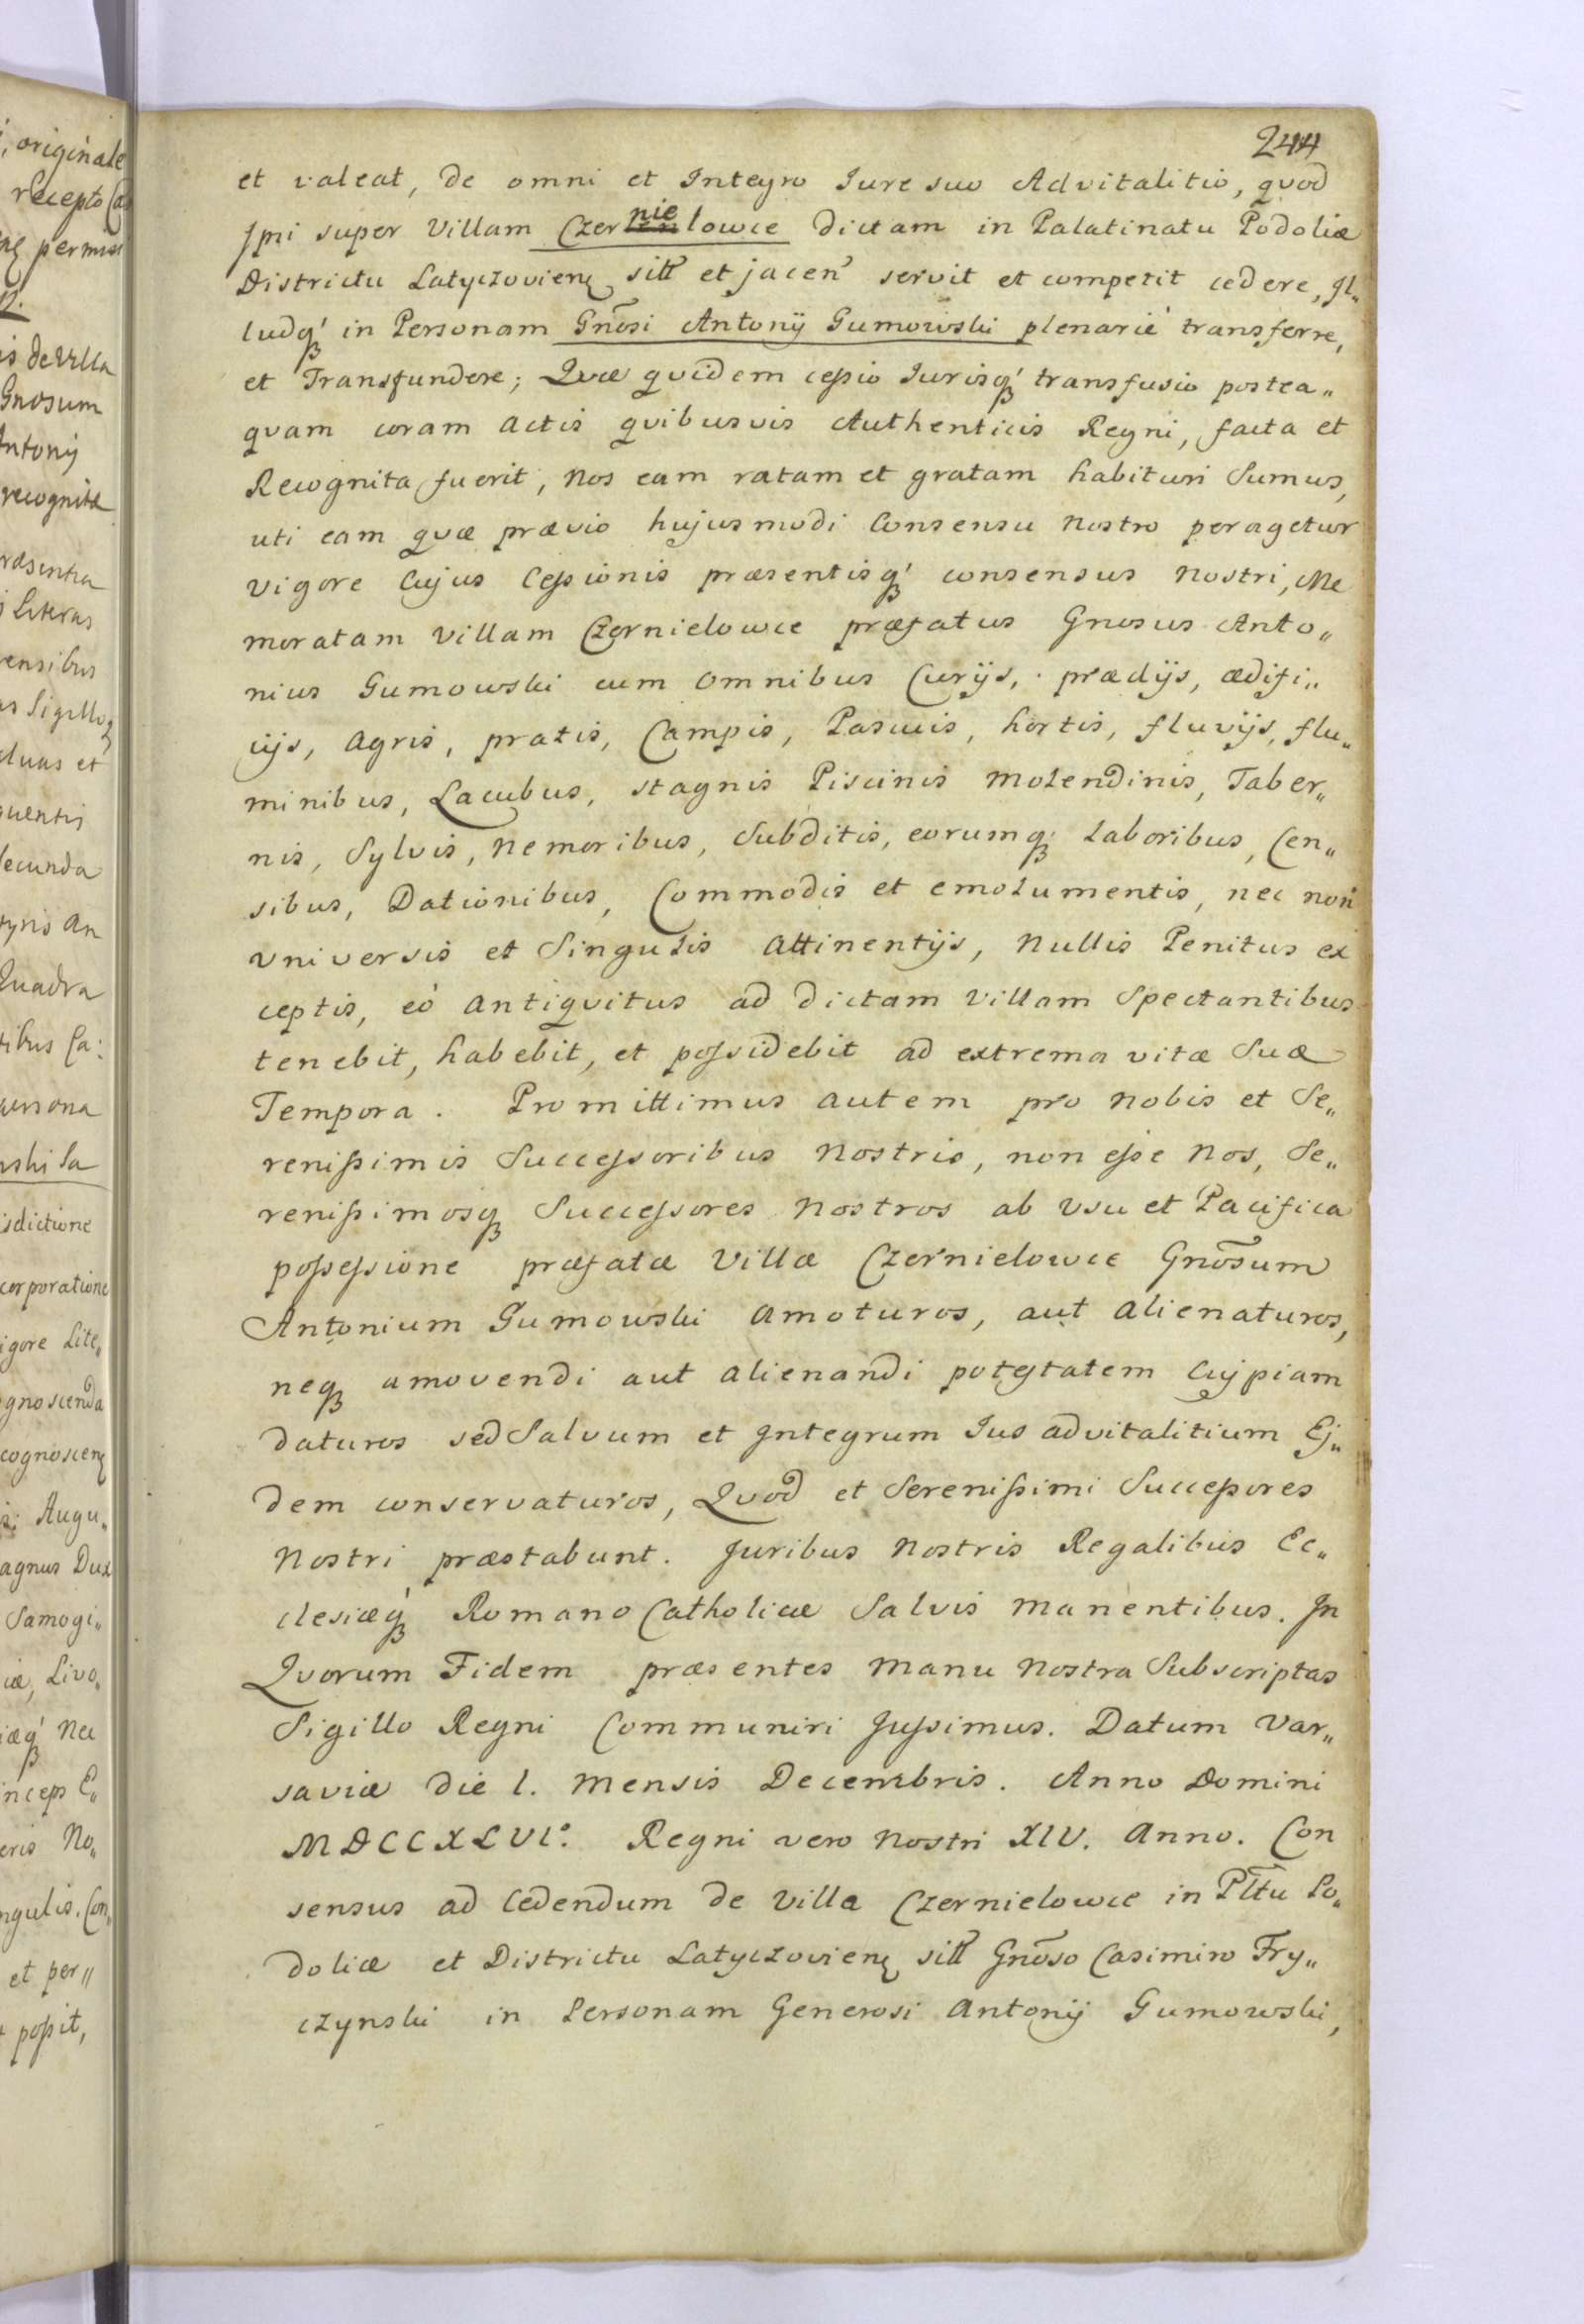 244
et valeat, de omni et Integro Iure suo Advitalitio, quod
Ipsi super Villam Czernielowce dictam in Palatinatu Podoliæ
Districtu Latyczovien sitt et jacen servit et competit cedere, Il„
ludq' in Personam Gnosi Antonij Gumowski plenarié transferre,
et Transfundere; Quæ quidem cessio Iurisq' transfusio postea„
quam coram Actis quibusvis Authenticis Regni, facta et
Recognita fuerit, Nos eam ratam et gratam habituri Sumus,
uti eam quæ prævio hujusmodi Consensu Nostro peragetur
vigore Cujus Cessionis præsentisq' consensus Nostri, Me
moratam Villam Czernielowce præfatus Gnosus Anto„
nius Gumowski cum omnibus Curijs, prædijs, ædifi„
cijs, Agris, pratis, Campis, Pascuis, hortis, fluvijs, flu„
minibus, Lacubus, stagnis Piscinis Molendinis, Taber„
nis, Sylvis, Nemoribus, Subditis, eorumq; Laboribus, Cen„
sibus, Dationibus, Commodis et emolumentis, nec non
universis et Singulis Attinentijs, Nullis Penitus ex
ceptis, eó Antiquitus ad dictam Villam Spectantibus
tenebit, habebit, et possidebit ad extrema vitæ Suæ
Tempora. Promittimus autem pro Nobis et Se„
renissimis Successoribus Nostris, non esse Nos, Se„
renissimosq Successores Nostros ab Usu et Pacifica
possessione præfatæ Villæ Czernielowce Gnosum
Antonium Gumowski Amoturos, aut Alienaturos,
neq amovendi aut Alienandi potestatem Cujpiam
daturos sed Salvum et Integrum Ius advitalitium Ej„
dem conservaturos, Quod et Serenissimi Successores
Nostri præstabunt. Juribus Nostris Regalibus Ec„
clesiæq' Romano Catholicæ Salvis Manentibus. In
Quorum Fidem præsentes Manu Nostra Subscriptas
Sigillo Regni Communiri Jussimus. Datum Var„
saviæ die 1. Mensis Decembris. Anno Domini
MDCCXLVI°. Regni vero Nostri XIV. Anno. Con
sensus ad Cedendum de Villa Czernielowce in Pltu Po„
doliæ et Districtu Latyczovien sitt Gnoso Casimiro Fry„
czynski in Personam Generosi Antonij Gumowski,